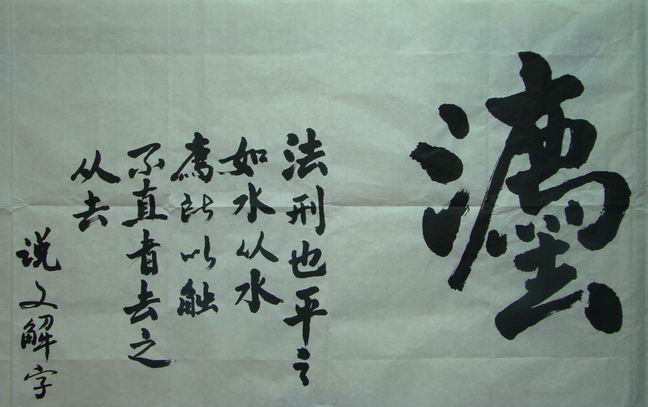 灋
法刑也平之
如水从水
廌所以触
不直者去之
从去
说文解字